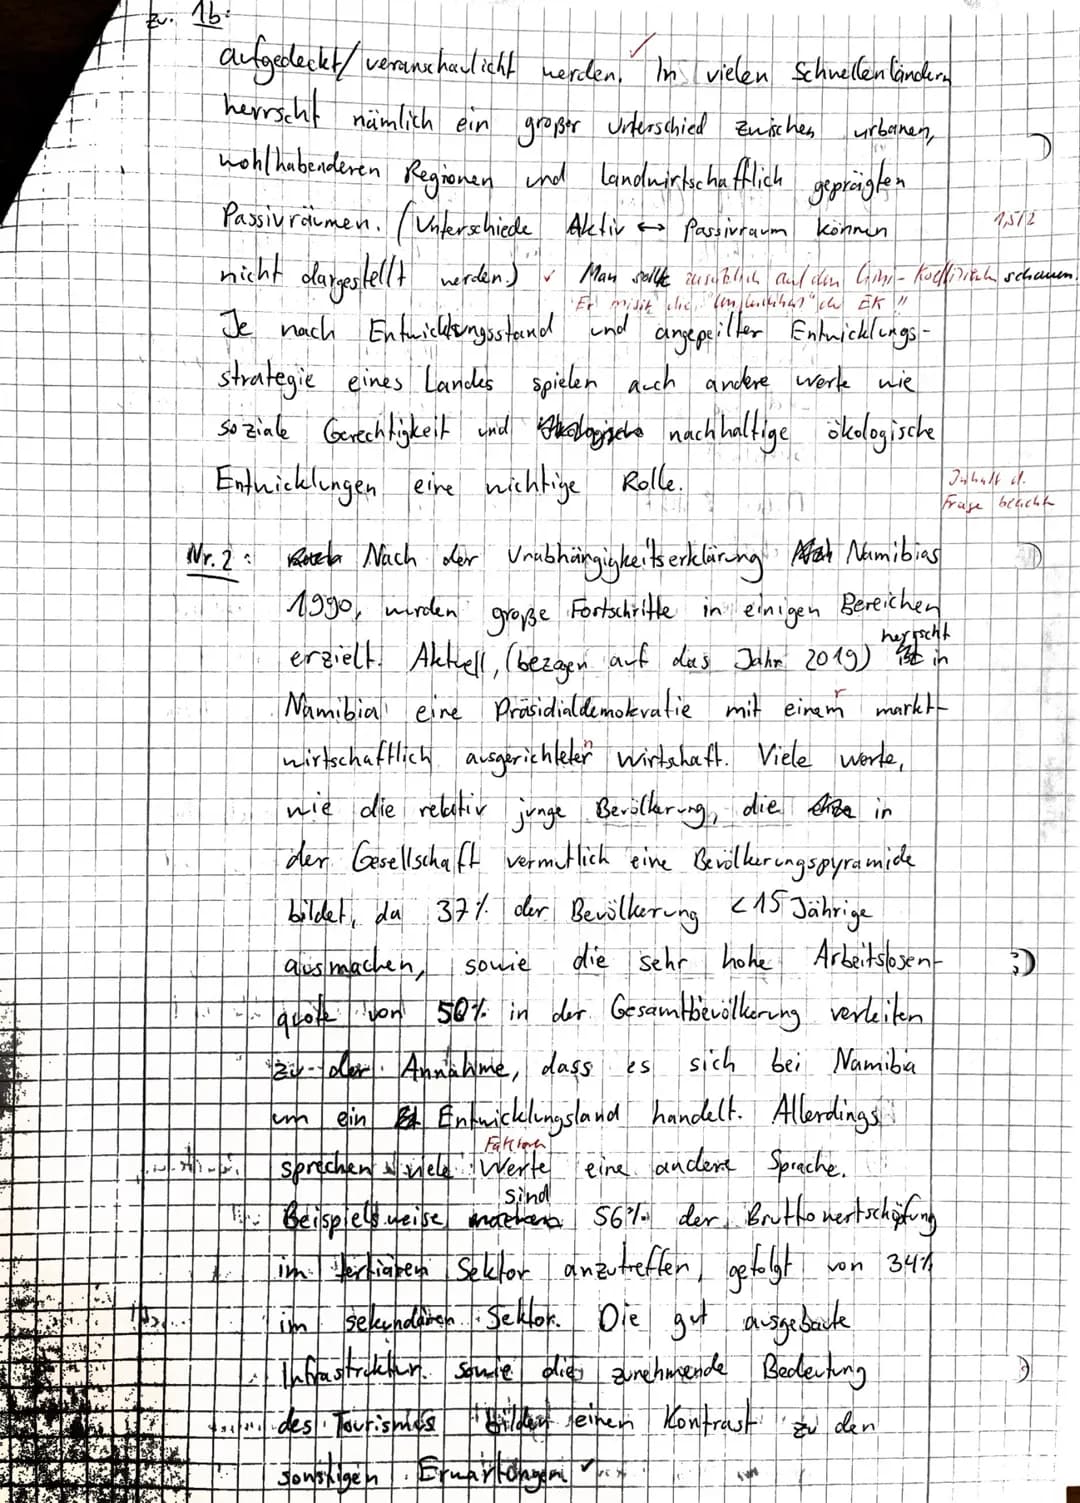 zu. 1b:
aufgedeckt/ veranschaulicht werden. In vielen Schwellenländern
herrscht nämlich ein großer Unterschied zwischen urbanen,
wohlhabenderen Regionen und landwirtschafftlich geprägten
Passivräumen. (Unterschiede Aktiv ↔ Passivraum können
1,5/2
nicht dargestellt werden.) ✓ Man sollte zusätzlich auf den Gini-Koeffizienten schauen.
Er misst die " " EK "
Je nach Entwicklungsstand und angepeilter Entwicklungs-
strategie eines Landes spielen auch andere Werte wie
soziale Gerechtigkeit und nachhaltige ökologische
Entwicklungen eine wichtige Rolle.
Inhalt d.
Frage beachten
Nr. 2: Nach der Unabhängigkeitserklärung Namibias
1990, wurden große Fortschritte in einigen Bereichen
erzielt. Aktuell, (bezogen auf das Jahr 2019) herrscht in
Namibia eine Präsidialdemokratie mit einem markt-
r
wirtschaftlich ausgerichteter Wirtshaft. Viele Werte,
n
wie die relativ junge Bevölkerung, die in
der Gesellschaft vermutlich eine Bevölkerungspyramide
bildet, da 37% der Bevölkerung <15 Jährige
ausmachen, sowie die sehr hohe Arbeitslosen-
quote von 50% in der Gesamtbevölkerung verleiten
zu der Annahme, dass es sich bei Namibia
um ein Entwicklungsland handelt. Allerdings
Faktoren
sprechen viele Werte eine andere Sprache.
Beispielsweise sind 56% der Bruttowertschöpfung
im tertiären Sektor anzutreffen, gefolgt von 34%
im sekundären Sektor. Die gut ausgebaute
Infrastruktur sowie die zunehmende Bedeutung
des Tourismus bilden einen Kontrast zu den
sonstigen Erwartungen ✓